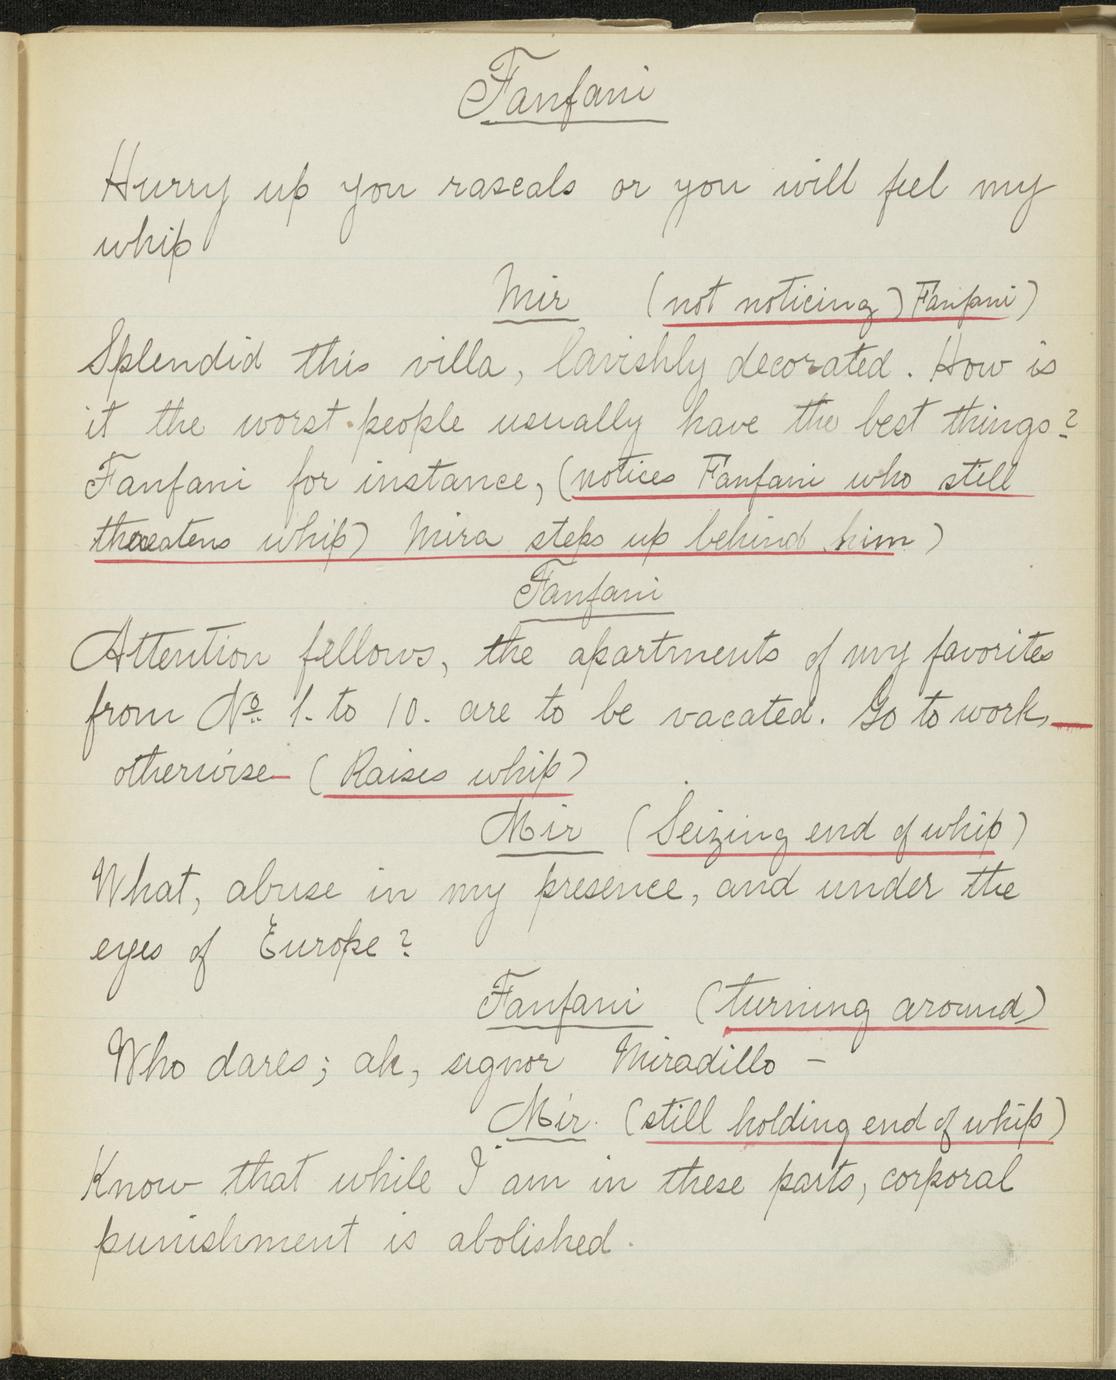 Fanfani
Hurry up you rascals or you will feel my
whip
Mir (not noticing) Fanfani)
Splendid this villa, lavishly decorated. How is
it the worst people usually have the best things?
Fanfani for instance, (notices Fanfani who still
threatens whip) Mira steps up behind him)
Fanfani
Attention fellows, the apartments of my favorites
from No. 1. to 10. are to be vacated. Go to work,—
otherwise— (Raises whip)
Mir (Seizing end of whip)
What, abuse in my presence, and under the
eyes of Europe?
Fanfani (turning around)
Who dares; ah, signor Miradillo –
Mir. (still holding end of whip)
Know that while I am in these parts, corporal
punishment is abolished.